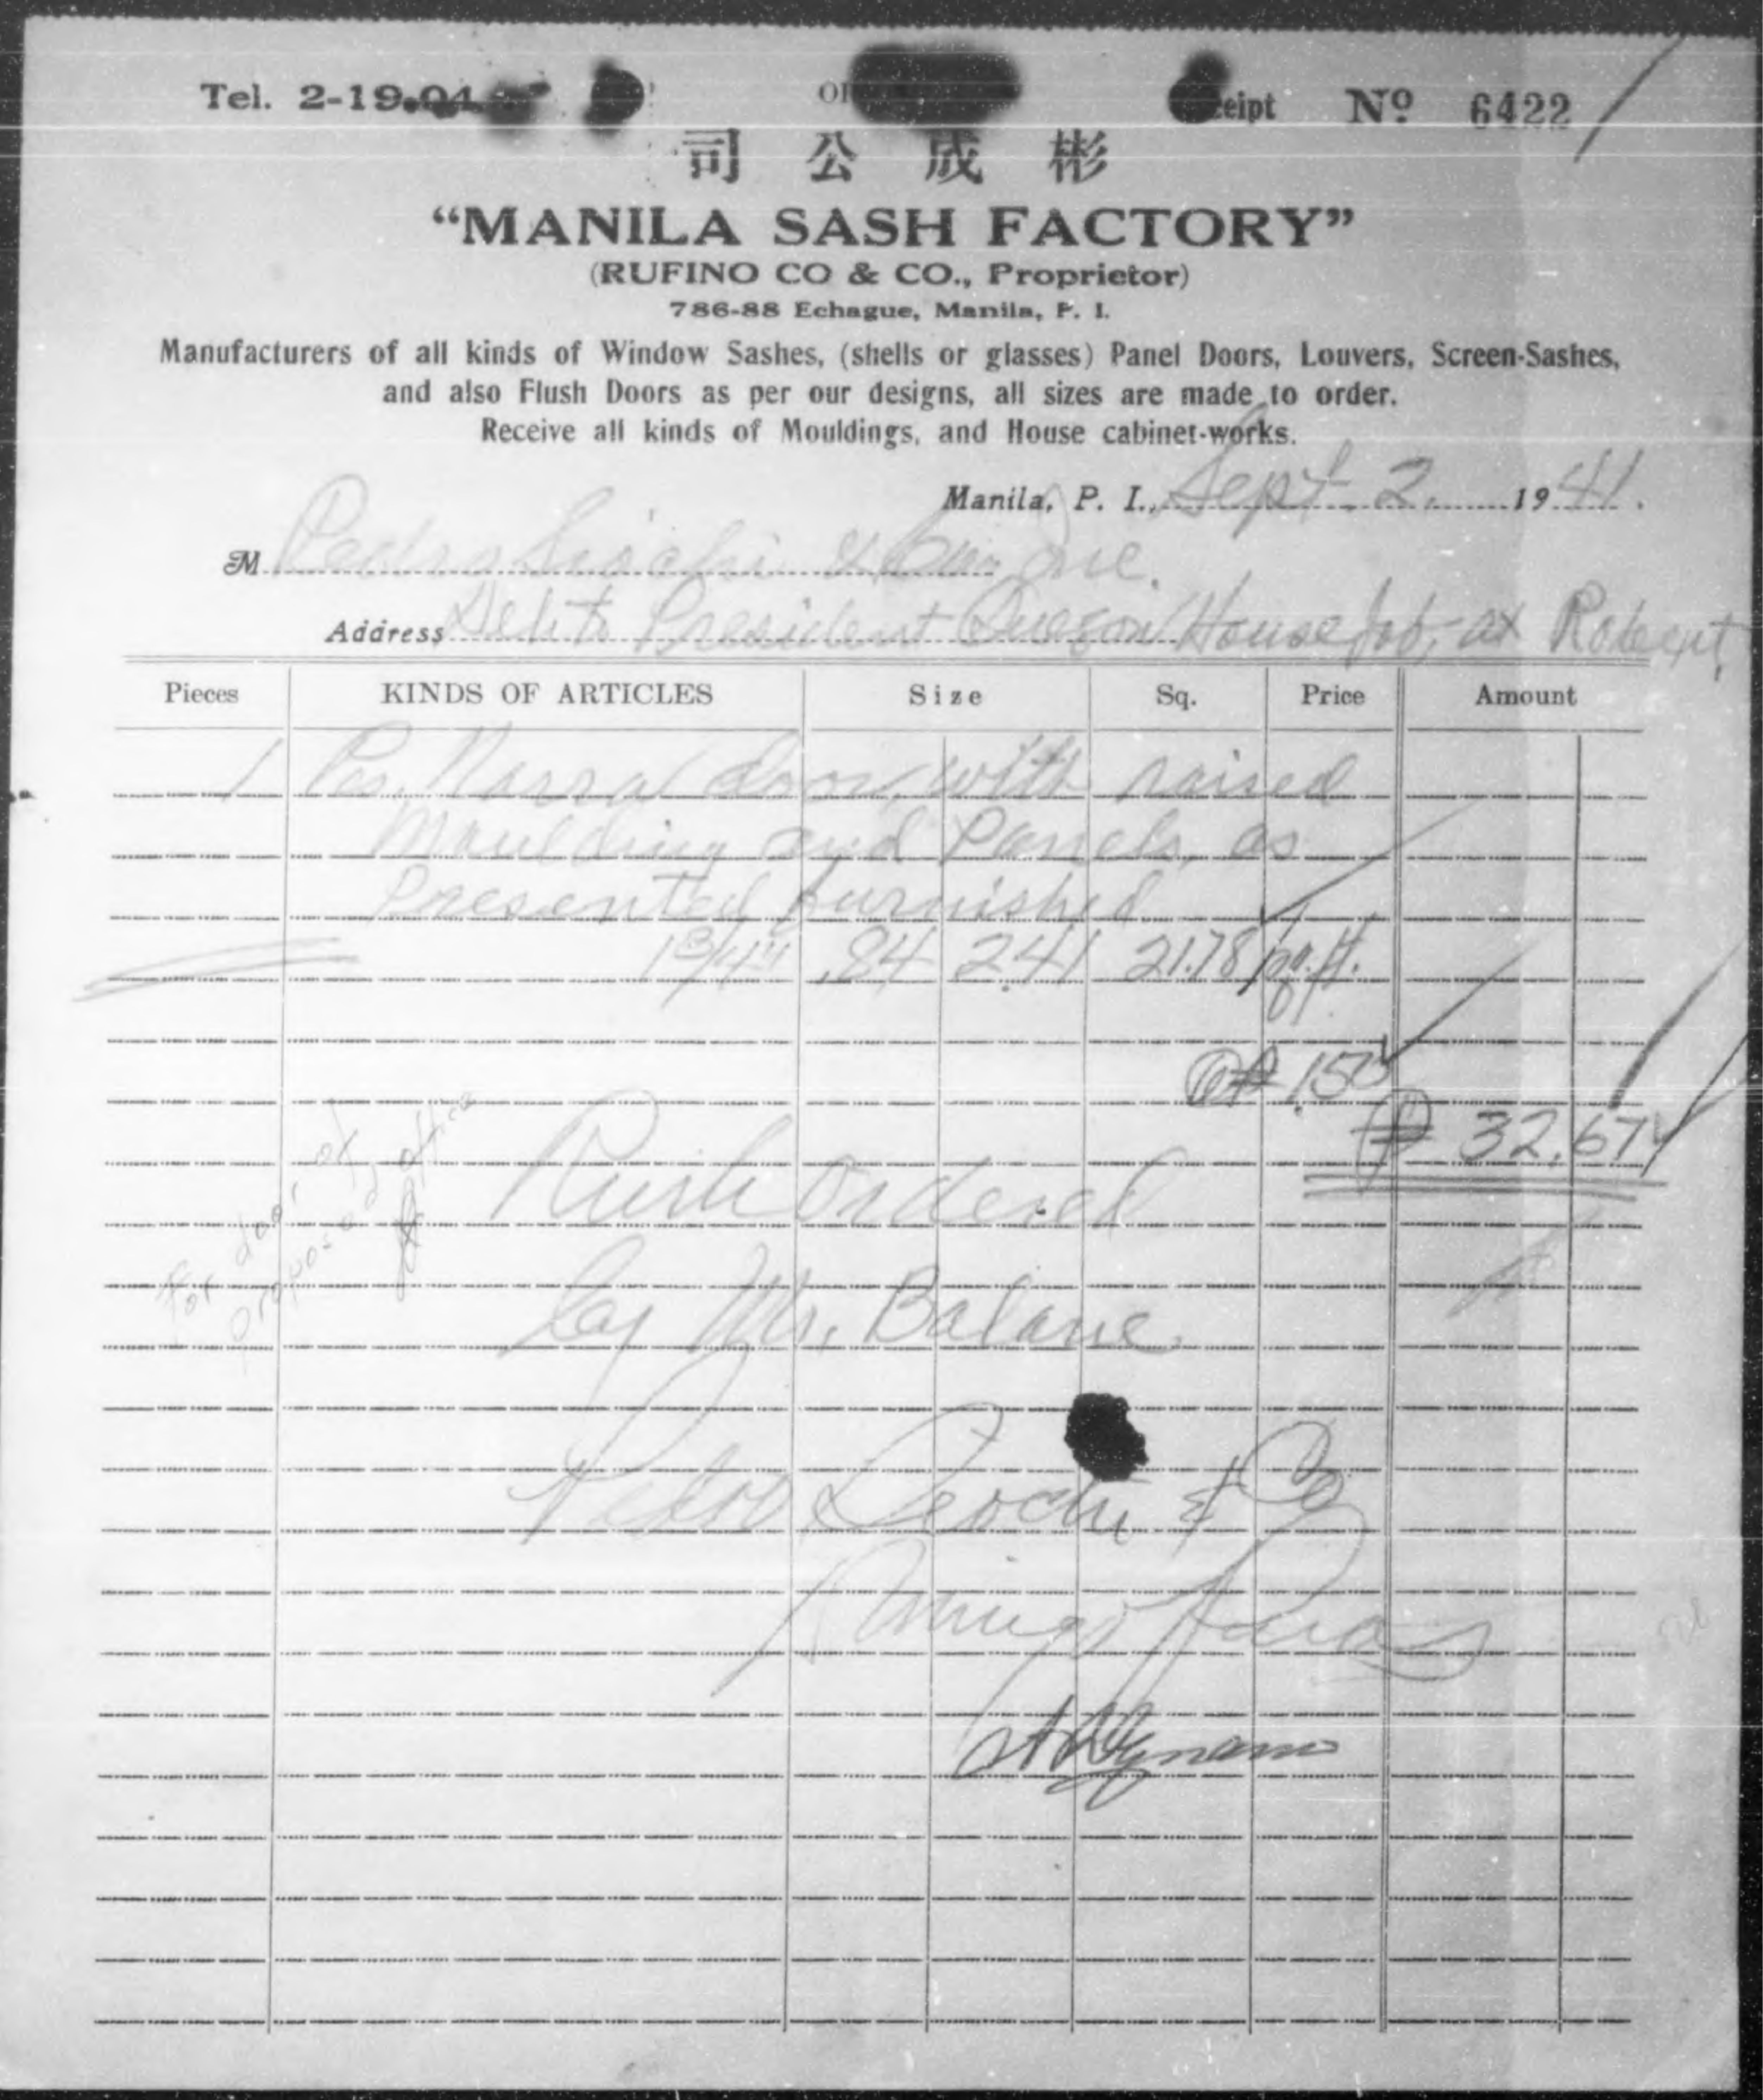 Tel. 2-19-04 eipt Nº 6422
司公成彬
“MANILA SASH FACTORY”
(RUFINO CO & CO., Proprietor)
786-88 Echague, Manila, P. I.
Manufacturers of all kinds of Window Sashes, (shells or glasses) Panel Doors, Louvers, Screen-Sashes,
and also Flush Doors as per our designs, all sizes are made to order.
Receive all kinds of Mouldings, and House cabinet-works.
Manila, P. I., Sept 2. 1941.
M Pedro Siochi & Inc.
Address President Quezon House Job, at
Pieces KINDS OF ARTICLES Size Sq. Price Amount
1 Pc. Narra door, with raised
Moulding and Panels, as
Presented furnished
1 3/4" .84 2.41 21.78
@ ₱ 1.50
₱ 32.67
for door of
proposed office
Rush Ordered
by Mr. Balane.
Pedro Siochi & Co